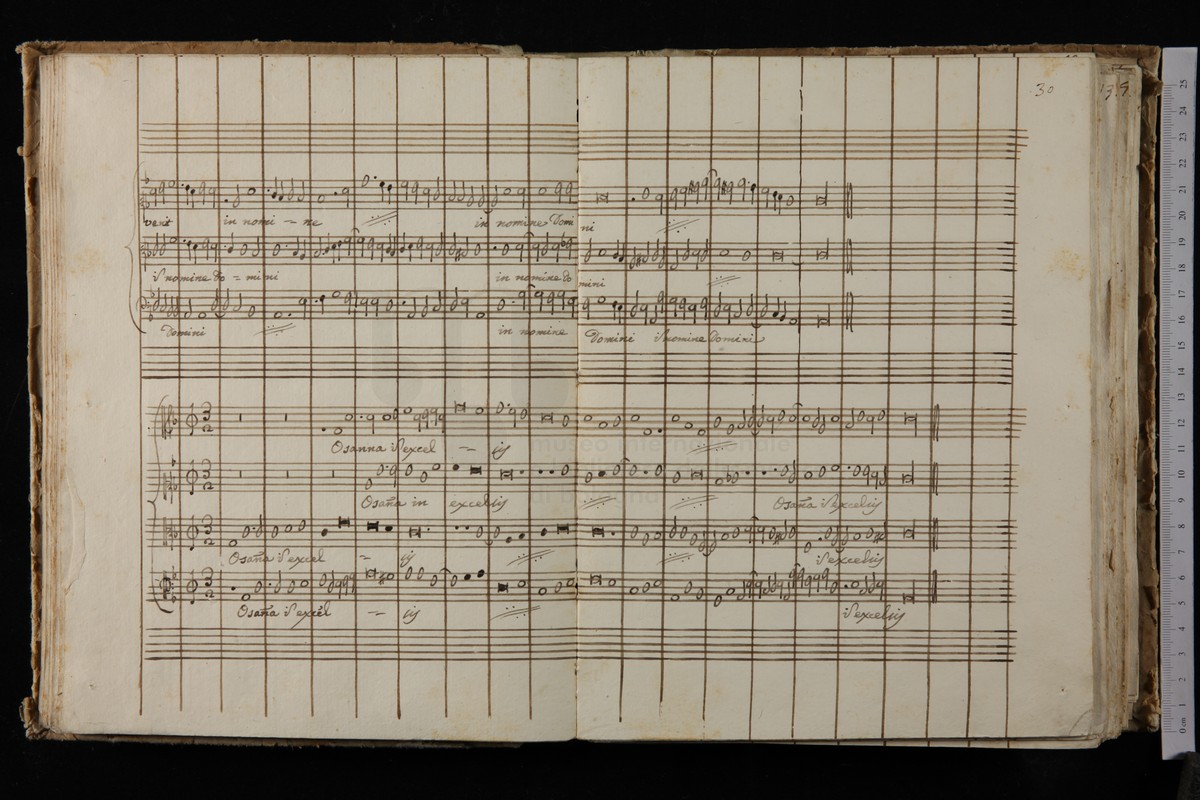 30
139
venit in nomi - ne in nomine Domi ni
I nomine do - mini in nomine do mini
Domini in nomine Domini I nomine Domini
Osanna I excel - is
Osaña in excelsis Osaña I excelsis
Osaña I excel - is I excelsis
Osaña I excel - is I excelsis
museo internazionale
di bologna